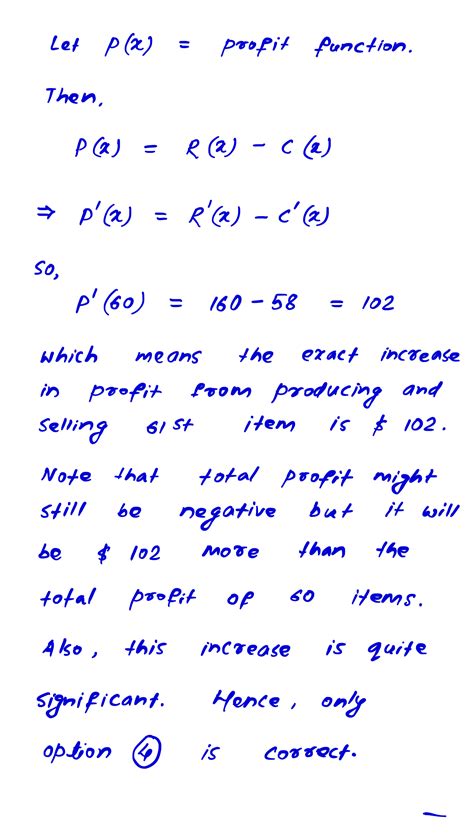 Let P(x) = profit function.
Then,
P(x) = R(x) - C(x)
⇒ P'(x) = R'(x) - C'(x)
So,
P'(60) = 160 - 58 = 102
which means the exact increase
in profit from producing and
selling 61st item is $ 102.
Note that total profit might
still be negative but it will
be $ 102 more than the
total profit of 60 items.
Also, this increase is quite
significant. Hence, only
option ④ is correct.